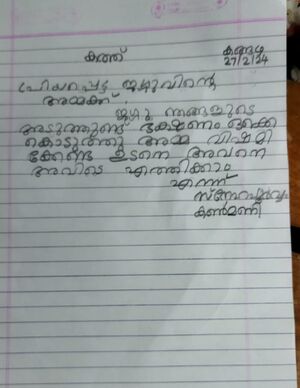 കത്ത്
കങ്ങഴ
27/2/24
പ്രിയപ്പെട്ട ജഗ്ഗുവിന്റെ
അമ്മക്ക്,
ജഗ്ഗു ഞങ്ങളുടെ
അടുത്തുണ്ട് ഭക്ഷണം ഒക്കെ
കൊടുത്തു അമ്മ വിഷമി
ക്കേണ്ട ഉടനെ അവനെ
അവിടെ എത്തിക്കാം
എന്ന്
സ്നേഹപൂർവ്വം
കൺമണി